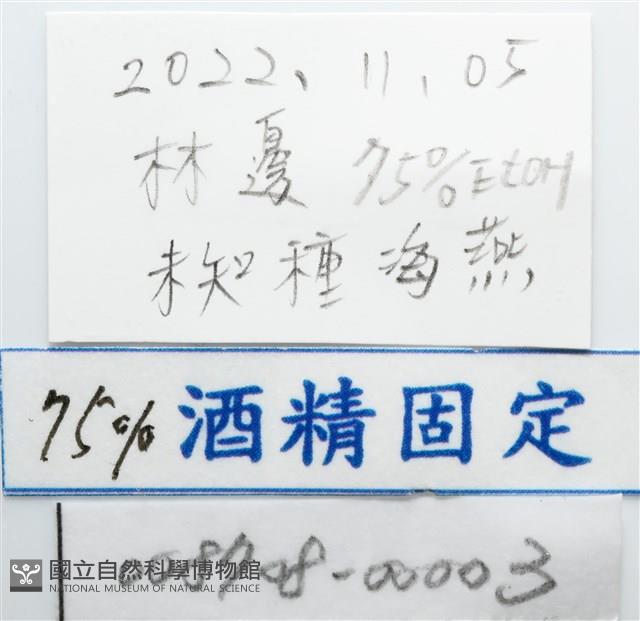 2022、11、05
林邊 75% EtOH
未知種海燕
75% 酒精固定
008908-00003
國立自然科學博物館
NATIONAL MUSEUM OF NATURAL SCIENCE